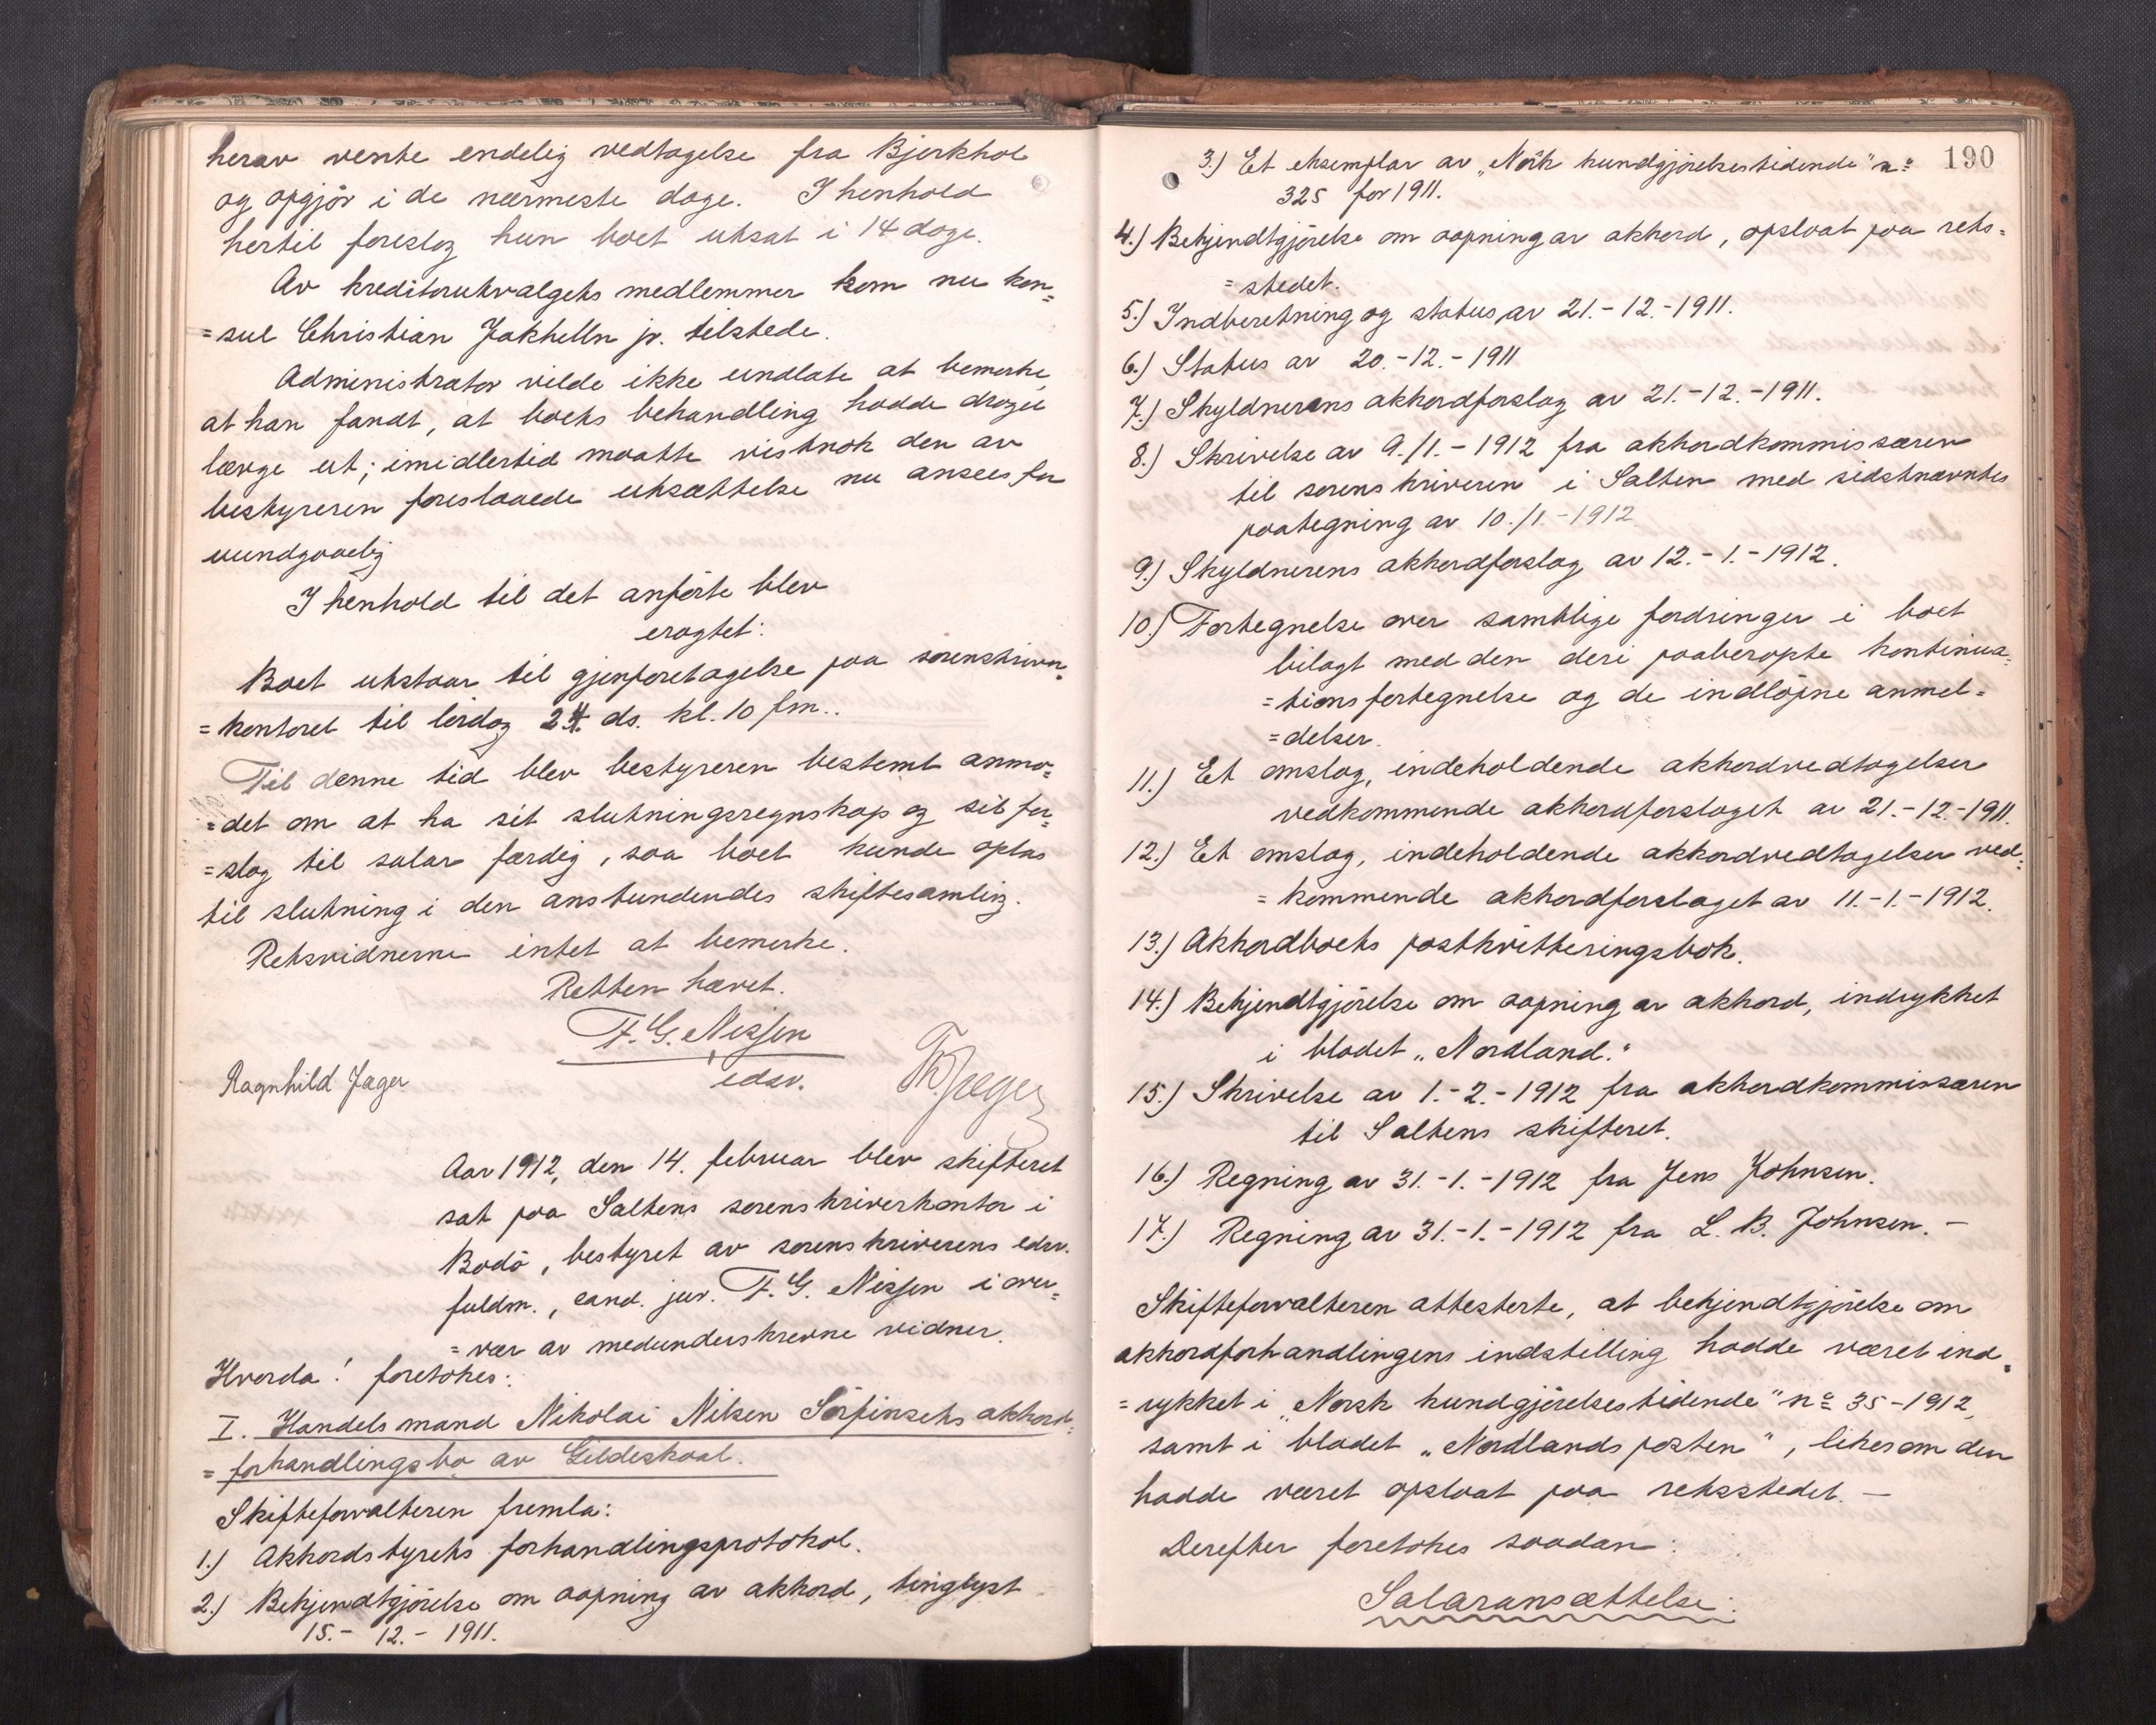 herav vente endelig vedtagelse fra Bjerkhol
og opgjør i de nærmeste dage. I henhold
hertil foreslog hun boet utsat i 14 dage.
Av kreditorutvalgets medlemmer kom nu kon=
=sul Christian Jakhelln jr. tilstede.
Administrator vilde ikke undlate at bemerke,
at han fandt, at boets behandling hadde draget
længe ut; imidlertid maatte vistnok den av
bestyreren foreslaaede utsættelse nu ansees for
uundgaaelig
I henhold til det anførte blev
eragtet:
Boet utstaar til gjenforetagelse paa sorenskriver=
=kontoret til lørdag 24. ds. kl. 10 fm..
Til denne tid blev bestyreren bestemt anmo=
=det om at ha sit slutningsregnskap og sit for=
=slag til salar færdig, saa boet kunde optas
til slutning i den anstundendes skiftesamling.
Retsvidnerne intet at bemerke.
Retten hævet.
F. G. Nissen
edsv.
Ragnhild Jager
Th. Jæger
Aar 1912, den 14. februar blev skifteret
sat paa Saltens sorenskriverkontor i
Bodø, bestyret av sorenskriverens edsv.
fuldm., cand. jur. F. G. Nissen i over=
=vær av medunderskrevne vidner.
Hvorda! foretokes:
I. Handelsmand Nikolai Nilsen Sørfinsets akkord=
=forhandlingsbo av Gildeskaal.
Skifteforvalteren fremla:
1.) Akkordstyrets forhandlingsprotokol.
2.) Bekjendtgjørelse om aapning av akkord, tinglyst
15.- 12.- 1911.
190
3.) Et eksemplar av „Norsk kundgjørelsestidende" no
325 for 1911.
4.) Bekjendtgjørelse om aapning av akkord, opslaat paa rets=
=stedet.
5.) Indberetning og status av 21.-12.-1911.
6.) Status av 20.-12.-1911
7.) Skyldnerens akkordforslag av 21.-12.-1911.
8.) Skrivelse av 9./1.-1912 fra akkordkommissæren
til sorenskriveren i Salten med sidstnævntes
paategning av 10./1.-1912
9.) Skyldnerens akkordforslag av 12.-1.-1912.
10.) Fortegnelse over samtlige fordringer i boet
bilagt med den deri paaberopte kontinua=
=tionsfortegnelse og de indløpne anmel=
=delser.
11.) Et omslag, indeholdende akkordvedtagelser
vedkommende akkordforslaget av 21.-12.-1911.
12.) Et omslag, indeholdende akkordvedtagelser ved=
=kommende akkordforslaget av 11.-1.-1912.
13.) Akkordboets postkvitteringsbok.
14.) Bekjendtgjørelse om aapning av akkord, indrykket
i bladet „Nordland."
15.) Skrivelse av 1.-2.-1912 fra akkordkommissæren
til Saltens skifteret.
16.) Regning av 31.-1.-1912 fra Jens Johnsen.
17.) Regning av 31.-1.-1912 fra L. B. Johnsen. –
Skifteforvalteren attesterte, at bekjendtgjørelse om
akkordforhandlingens indstilling hadde været ind=
=rykket i „Norsk kundgjørelsestidende" no 35-1912,
samt i bladet „Nordlandsposten", likesom den
hadde været opslaat paa retsstedet. –
Derefter foretokes saadan:
Salaransættelse: